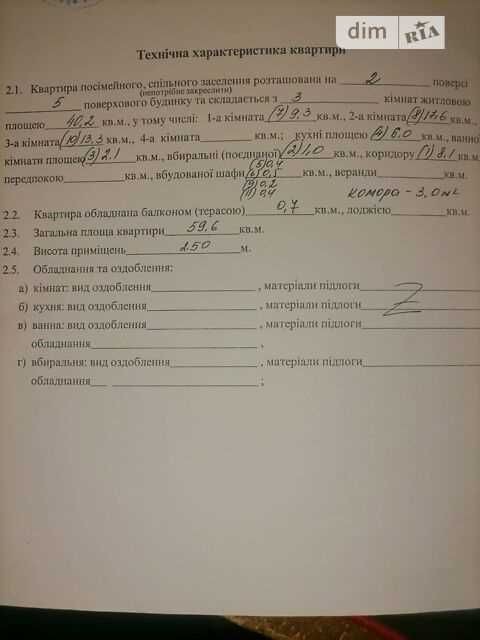 dim RIA
Технічна характеристика квартири
2.1. Квартира посімейного, спільного заселення розташована на 2 поверсі
(непотрібне закреслити)
5 поверхового будинку та складається з 3 кімнат житловою
площею 40,2 кв.м., у тому числі: 1-а кімната (7) 9,3 кв.м., 2-а кімната (8) 17,6 кв.м.,
3-а кімната (10) 13,3 кв.м., 4-а кімната кв.м.; кухні площею (4) 6,0 кв.м., ванної
кімнати площею (3) 2,1 кв.м., вбиральні (поєднаної) (2) 1,0 кв.м., коридору (1) 8,1 кв.м.
передпокою кв.м., вбудованої шафи (5) 0,4 (6) 0,5 кв.м., веранди кв.м.
(9) 0,2
(11) 0,4 комора - 3,0 м2
2.2. Квартира обладнана балконом (терасою) 0,7 кв.м., лоджією кв.м.
2.3. Загальна площа квартири 59,6 кв.м.
2.4. Висота приміщень 250 м.
2.5. Обладнання та оздоблення:
а) кімнат: вид оздоблення , матеріали підлоги
б) кухня: вид оздоблення , матеріали підлоги
в) ванна: вид оздоблення , матеріали підлоги
обладнання ,
г) вбиральня: вид оздоблення , матеріали підлоги
обладнання ;